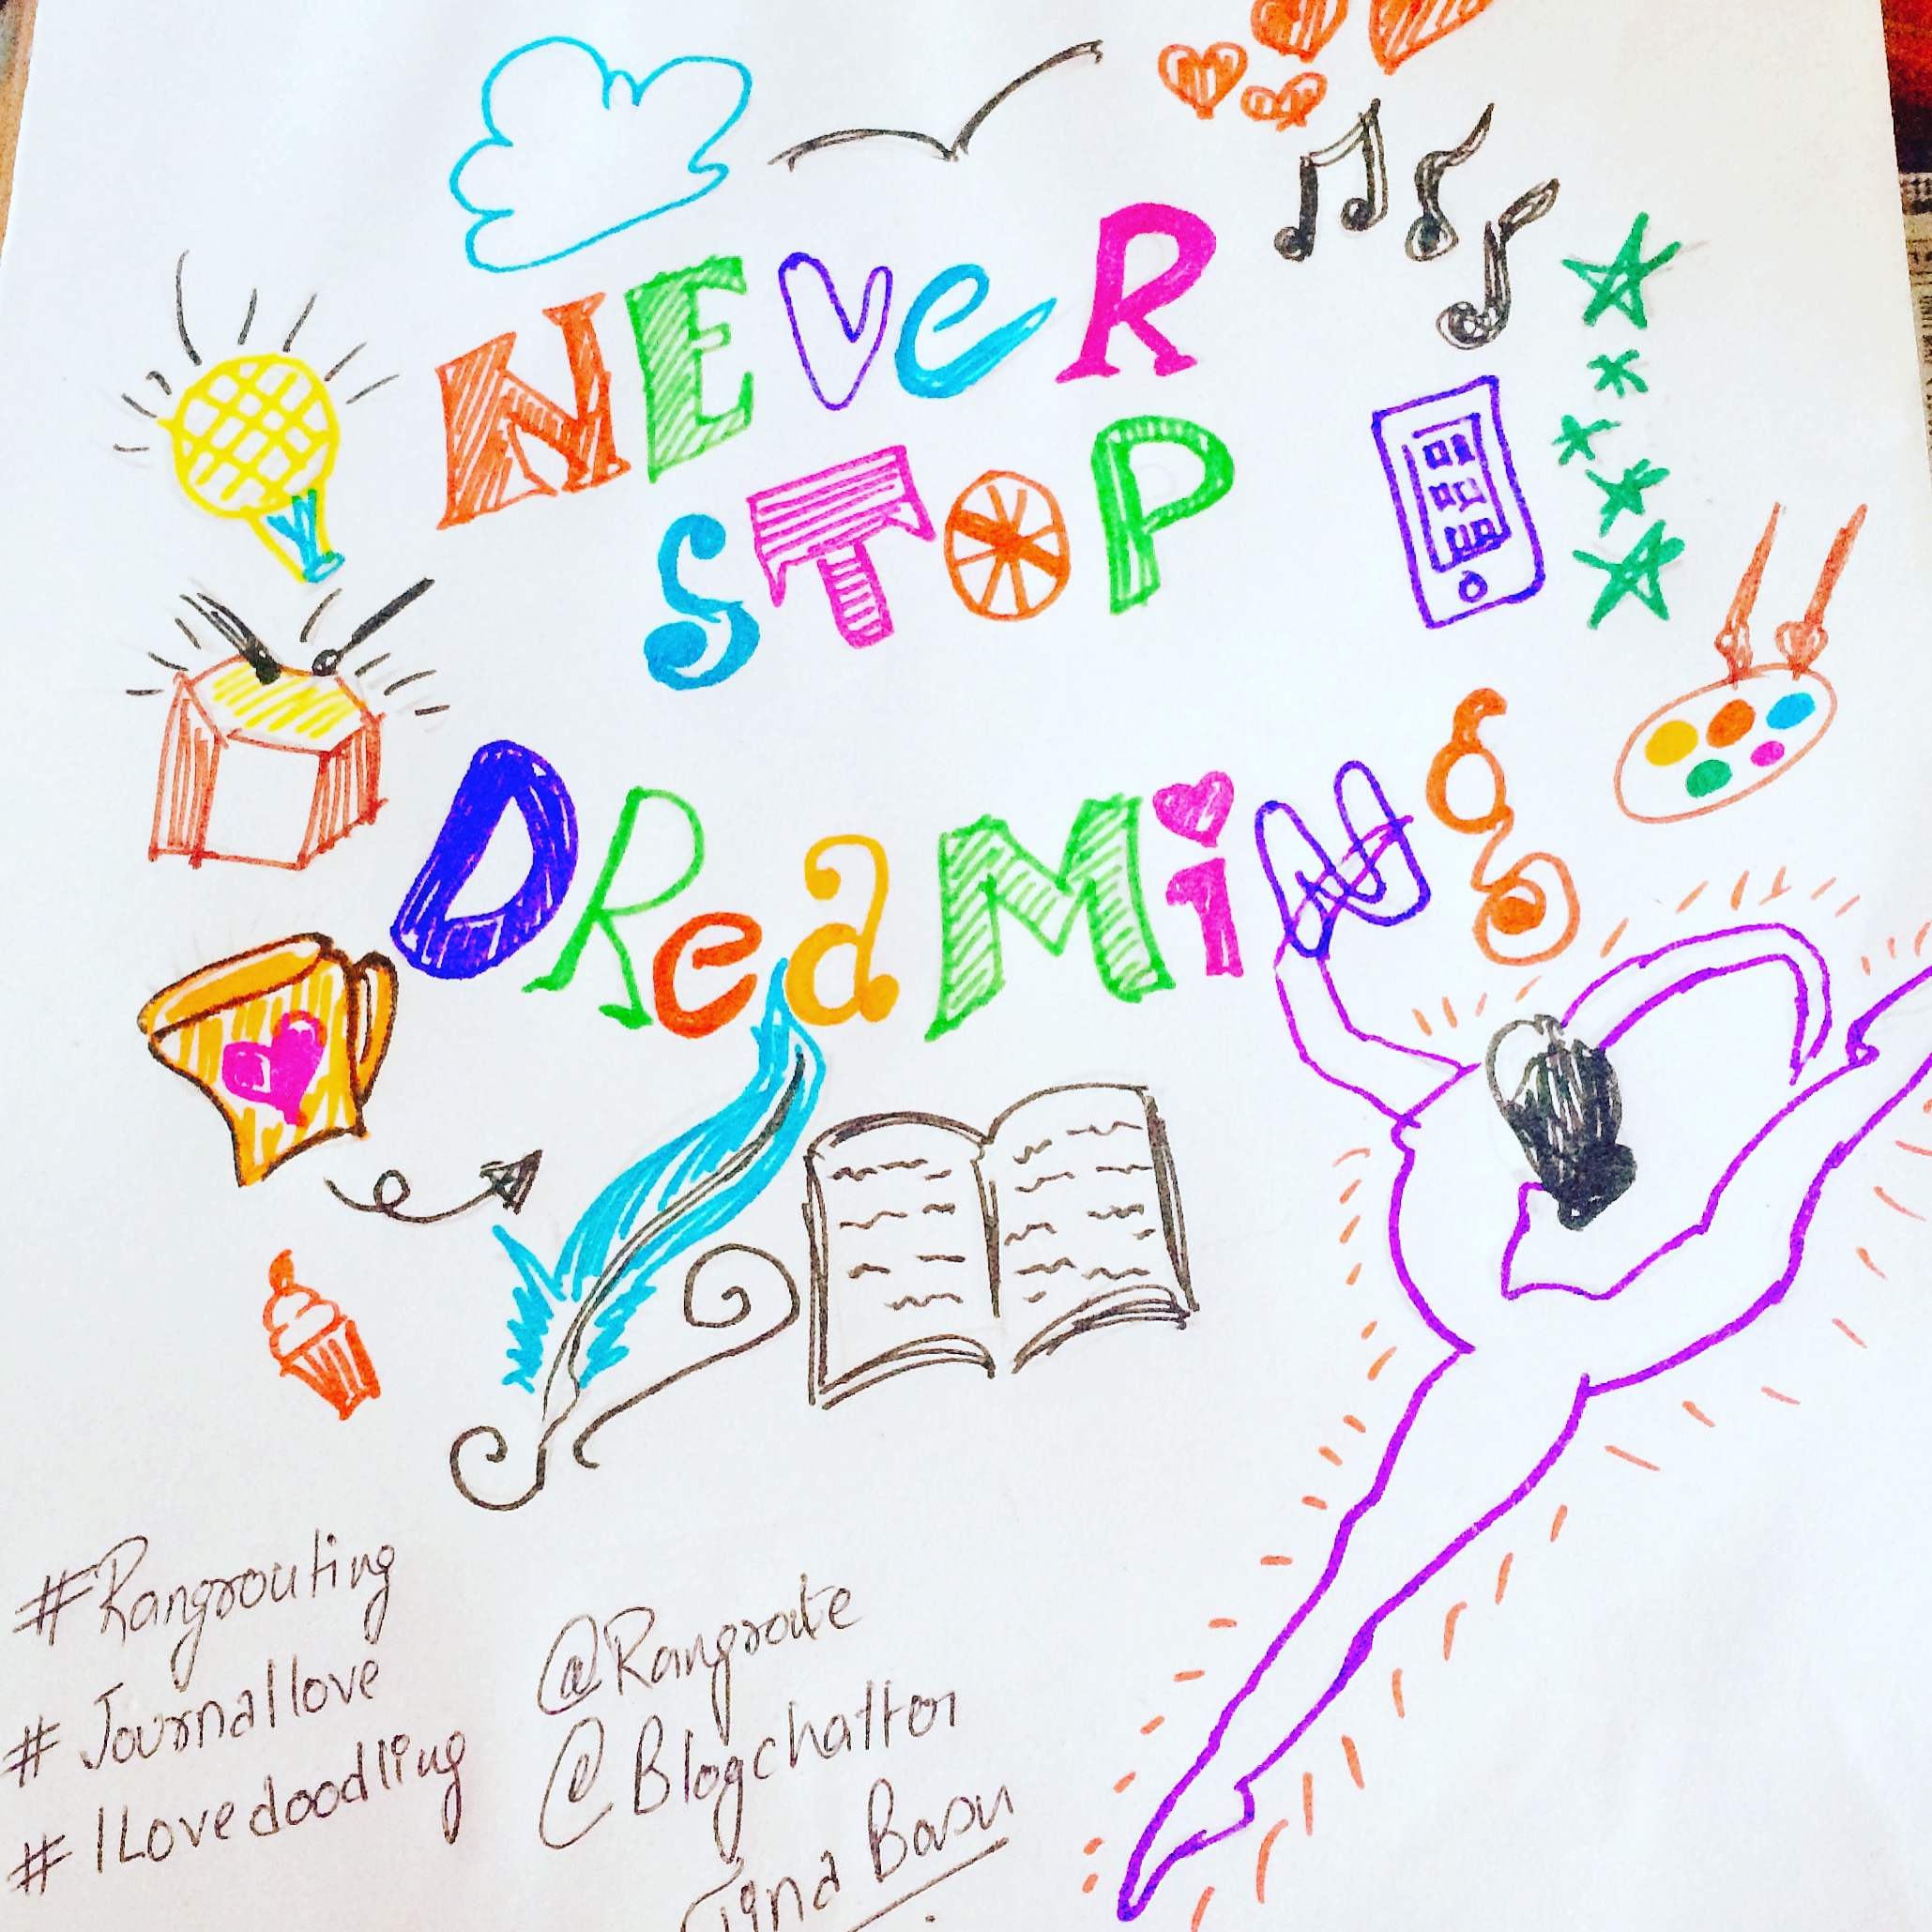 NEVeR
STOP
DReaMiNg
#Rangrouting
#Journallove
#ILovedoodling
@Rangroute
@Blogchatter
Tina Basu